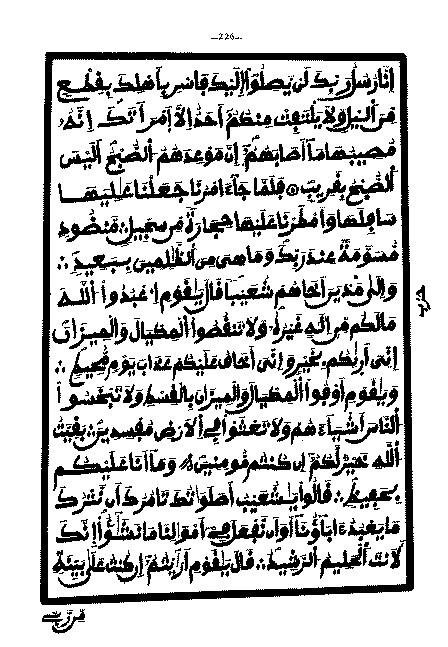 —226—
إنا رسل ربك لن يصلوا إليك فاسر بأهلك بقطع
من اليل ولا يلتفت منكم أحد إلا امرأتك إنه
مصيبها ما أصابهم إن موعدهم الصبح أليس
الصبح بقريب فلما جاء امرنا جعلنا عليها
سافلها وأمطرنا عليها حجارة من سجيل منضود
مسومة عند ربك وما هى من الظلمين ببعيد
وإلى مدين أخاهم شعيبا قال يقوم اعبدوا الله
مالكم من إله غيره ولا تنقصوا المكيال والميزان
إنى أريكم بخير وإنى أخاف عليكم عذاب يوم محيط
ويقوم أوفوا المكيال والميزان بالقسط ولا تبخسوا
الناس أشياءهم ولا تعثوا في الأرض مفسدين بقيت
الله خير لكم إن كنتم مومنين وما أنا عليكم
بحفيظ قالوا يشعيب أصلواتك تامرك أن نترك
ما يعبد ءاباؤنا أو أن نفعل في أموالنا ما نشؤا إنك
لأنت الحليم الرشيد قال يقوم أريتم إن كنت على بينة
من ربي
حزب